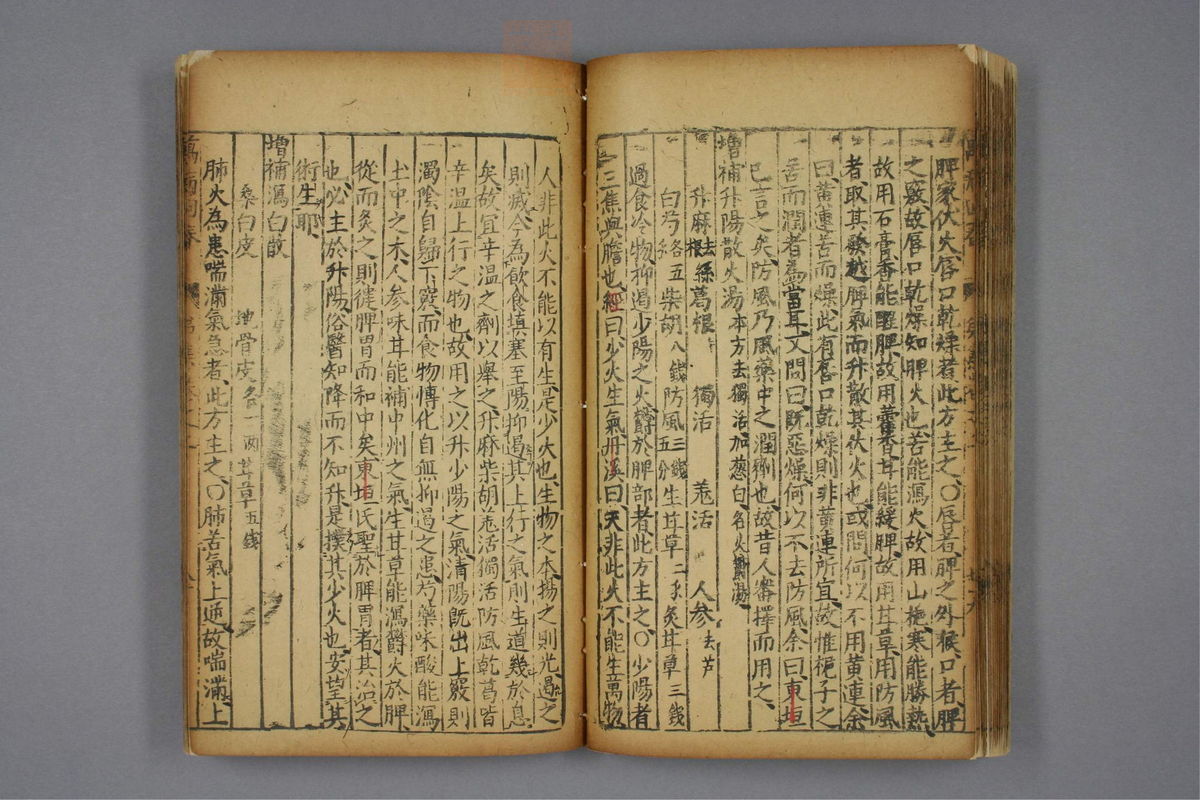 脾家伏火唇口乾燥者此方主之〇唇者脾之外候口者脾
之竅故唇口乾燥知脾火也苦能瀉火故用山梔寒能勝熱
故用石膏香能醒脾故用藿香甘能緩脾故用甘草用防風
者取其發越脾氣而升散其伏火也或問何以不用黃連余
曰黃連苦而燥此有唇口乾燥則非黃連所宜故惟梔子之
苦而潤者為當耳又問曰既惡燥何以不去防風余曰東垣
已言之矣防風乃風藥中之潤劑也故昔人審擇而用之
增補升陽散火湯本方去獨活加蔥白名火鬱湯
升麻去根 葛根 獨活 羗活 人參去芦
白芍各五 柴胡八錢 防風三錢五分 生甘草二 炙甘草三錢
過食冷物抑遏少陽之火鬱於脾部者此方主之〇少陽者
三焦與膽也經曰少火生氣丹溪曰天非此火不能生萬物
人非此火不能以有生是少火也生物之本揚之則光遏之
則滅今為飲食填塞至陽抑遏其上行之氣則生道幾於息
矣故宜辛溫之劑以舉之升麻柴胡羗活獨活防風乾葛皆
辛溫上行之物也故用之以升少陽之氣清陽既出上竅則
濁陰自歸下竅而食物傳化自無抑遏之患芍藥味酸能瀉
土中之木人參味甘能補中州之氣生甘草能瀉鬱火於脾
從而炙之則健脾胃而和中矣東垣氏聖於脾胃者其治之
也必主於升陽俗醫知降而不知升是撲其少火也安望其
術生耶
增補瀉白散
桑白皮 地骨皮各一兩 甘草五錢
肺火為患喘滿氣急者此方主之〇肺苦氣上逆故喘滿上